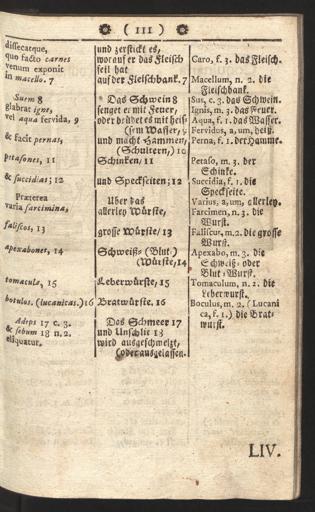 ( 111 )
dissecatque,
quo facto carnes
venum exponit
in macello. 7
Suem 8
glabrat igne,
vel aqua fervida, 9
& facit pernas,
petasones, 11
& succidias; 12
Præterea
varia farcimina,
faliscos, 13
apexabones, 14
tomacula, 15
botulos. (lucanicas.) 16
Adeps 17 c. 3.
& sebum 18 n. 2.
eliquatur.
und zerstickt es,
worauf er das Fleisch
feil hat
auf der Fleischbank. 7
Das Schwein 8
senget er mit Feuer,
oder brühet es mit heiß-
(sem Wasser, 9
und macht Hammen,
(Schultern,) 10
Schinken, 11
und Speckseiten; 12
Über das
allerley Würste,
grosse Würste, 13
Schweiß- (Blut-)
(Würste, 14
Leberwürste, 15
Bratwürste. 16
Das Schmeer 17
und Unschlit 18
wird ausgeschmelzt,
(oder ausgelassen.
Caro, f. 3. das Fleisch.
Macellum, n. 2. die
Fleischbank.
Sus, c. 3. das Schwein.
Ignis, m. 3. das Feuer.
Aqua, f. 1. das Wasser.
Fervidus, a, um, heiß.
Perna, f. 1. der Hamme.
Petaso, m. 3. der
Schinke.
Succidia, f. 1. die
Speckseite.
Varius, a, um, allerley.
Farcimen, n. 3. die
Wurst.
Faliscus, m. 2. die grosse
Wurst.
Apexabo, m. 3. die
Schweiß- oder
Blut-Wurst.
Tomaculum, n. 2. die
Leberwurst.
Botulus, m. 2. (Lucani
ca, f. 1.) die Brat-
wurst.
LIV.